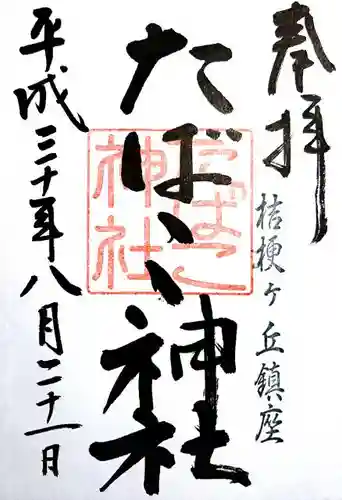 奉拝
桔梗ヶ丘鎮座
たばこ神社
たばこ神社
平成三十年八月二十一日